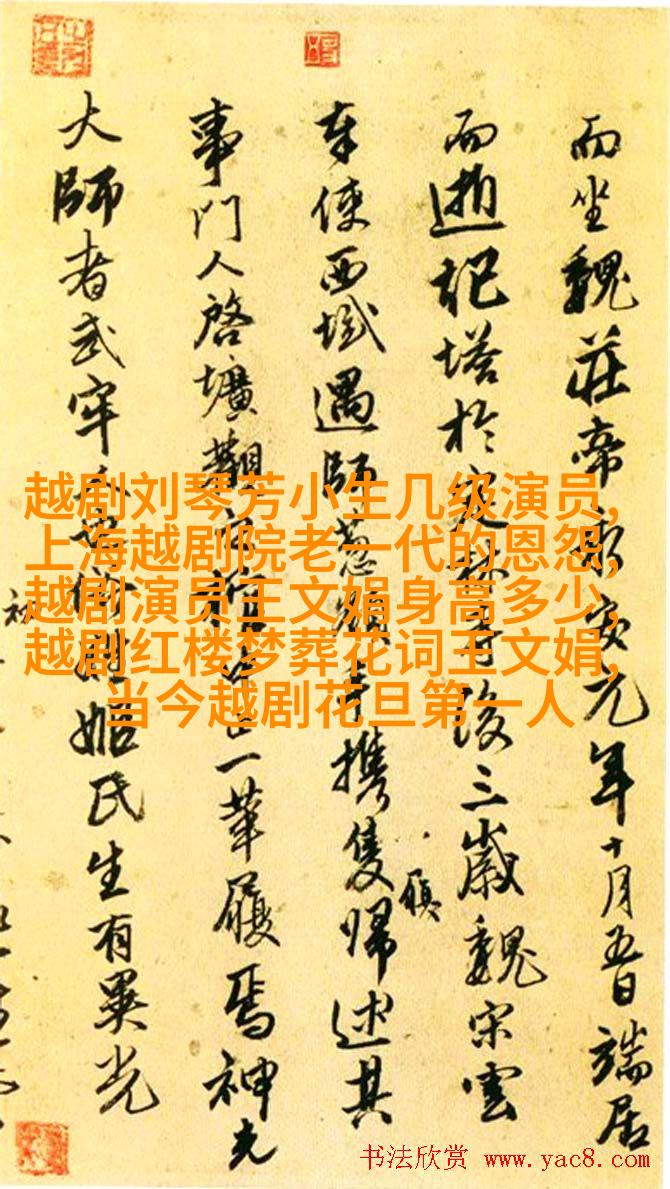 而坐魏莊帝永安元年十月五日端居
而逝記塔於定林寺後三歲魏宋雲
奉使西域遇師葱嶺手携隻歸述其
履
事門人啓壙觀一革履焉神光
大師者武牢人姬氏生有異光
越剧刘琴芳小生几级演员,
上海越剧院老一代的恩怨,
越剧演员王文娟身高多少,
越剧红楼梦葬花词王文娟,
当今越剧花旦第一人
书法欣赏 www.yac8.com